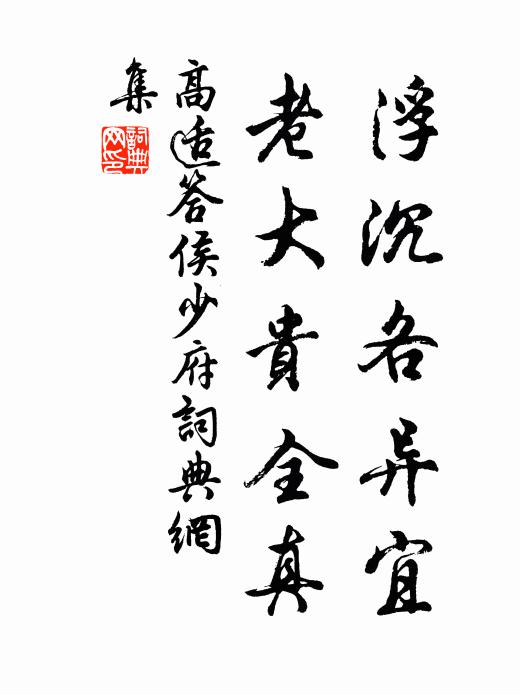 浮沉各异宜
老大貴全真
高适答侯少府詞典網
集
詞典网印